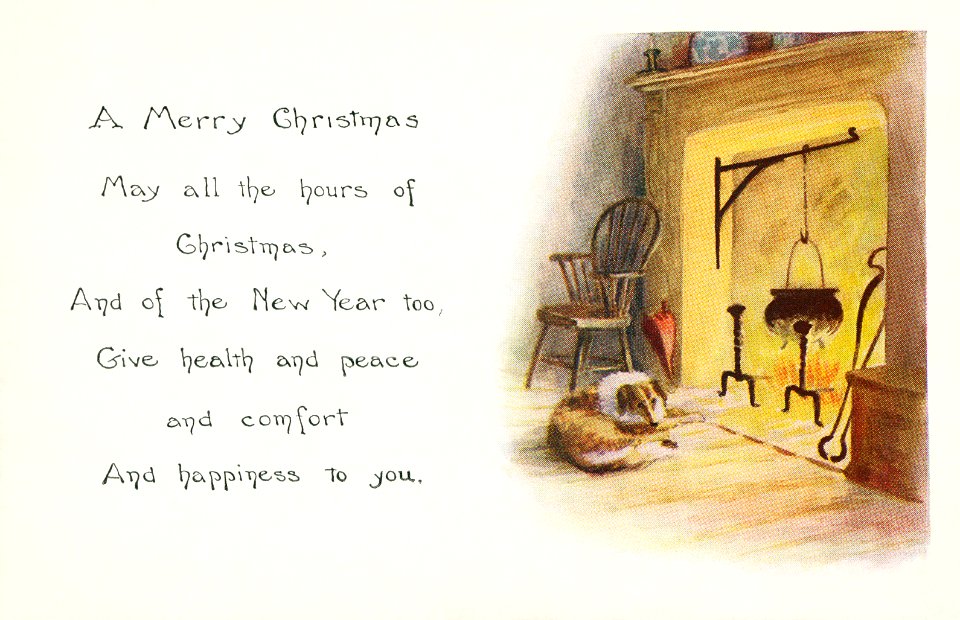 A Merry Christmas
May all the hours of
Christmas,
And of the New Year too,
Give health and peace
and comfort
And happiness to you.